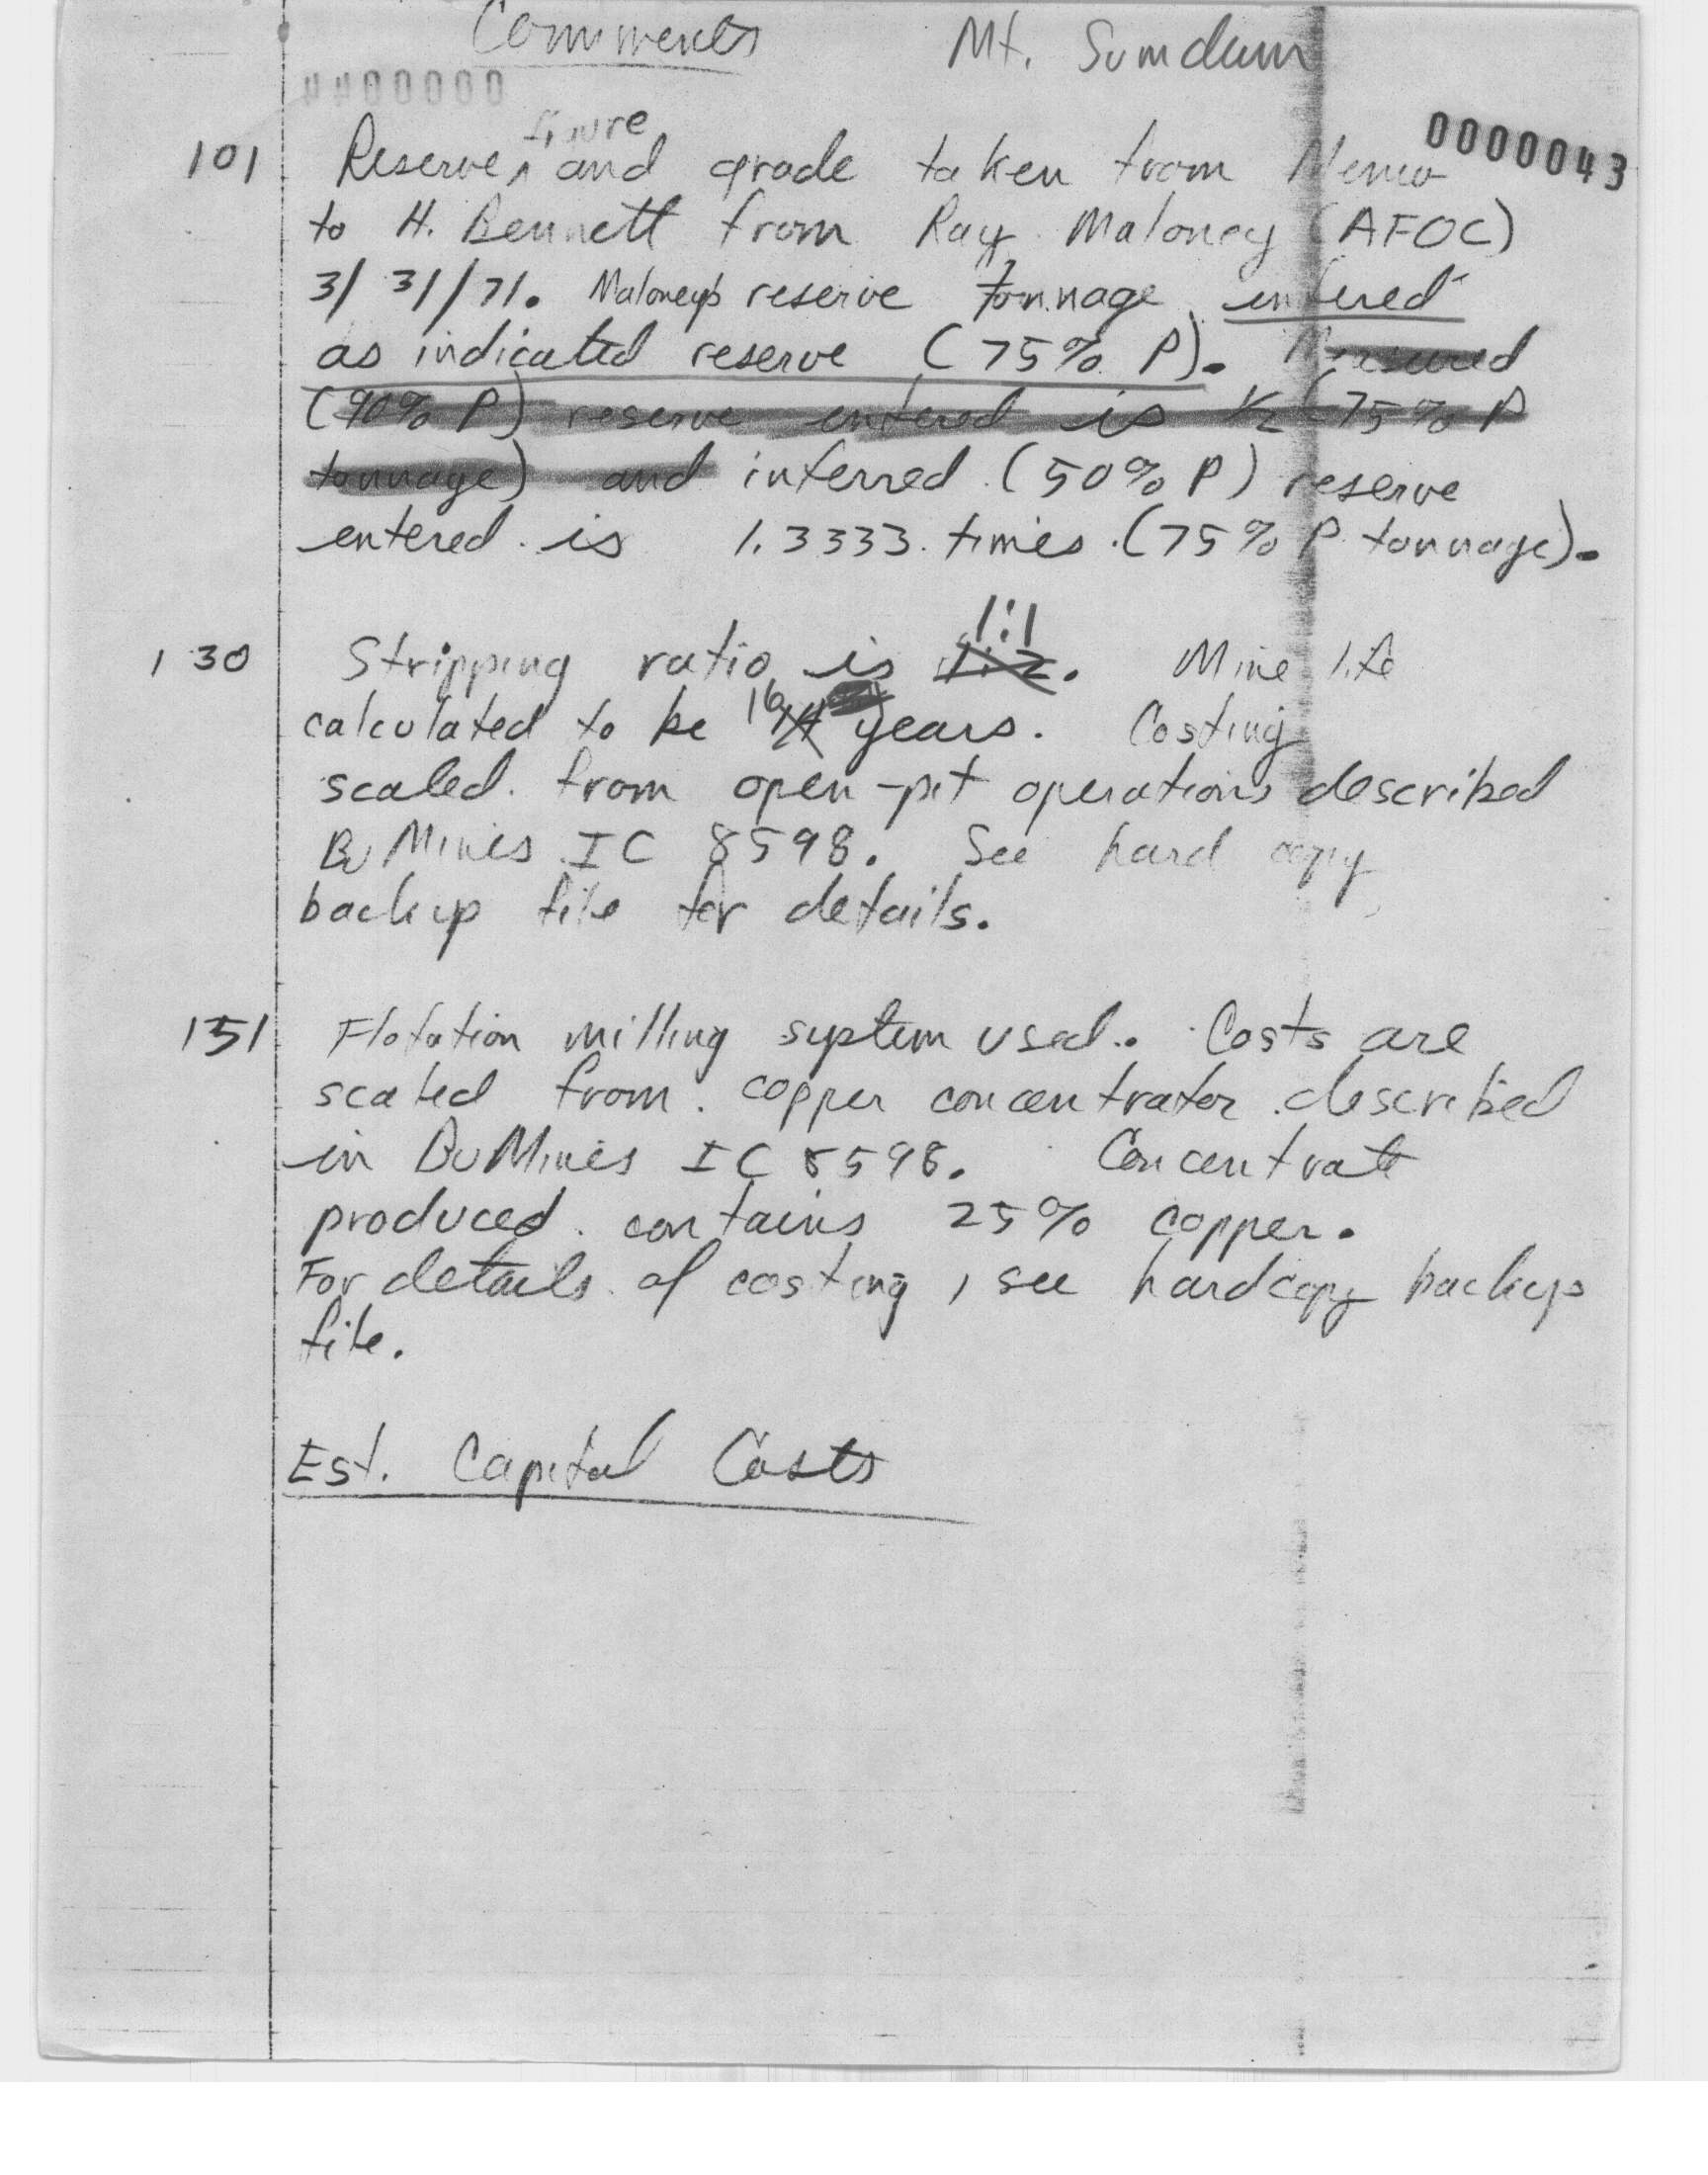 Comments Mt. Sumdum
0000000
0000043
figure
101 Reserve ‸ and grade taken from Memo
to H. Bennett from Ray Maloney (AFOC)
3/31/71. Maloney's reserve tonnage entered
as indicated reserve (75% P). Measured
(90% P) reserve entered is 1/2 (75% P
tonnage) and inferred (50% P) reserve
entered is 1.3333 times (75% P tonnage).
1:1
130 Stripping ratio is 1:2. Mine life
calculated to be 16 years. Costing
scaled from open-pit operations described
BuMines IC 8598. See hard copy
backup file for details.
151 Flotation milling system used. Costs are
scaled from copper concentrator described
in BuMines IC 8598. Concentrate
produced contains 25% copper.
For details of costing, see hardcopy backup
file.
Est. Capital Costs